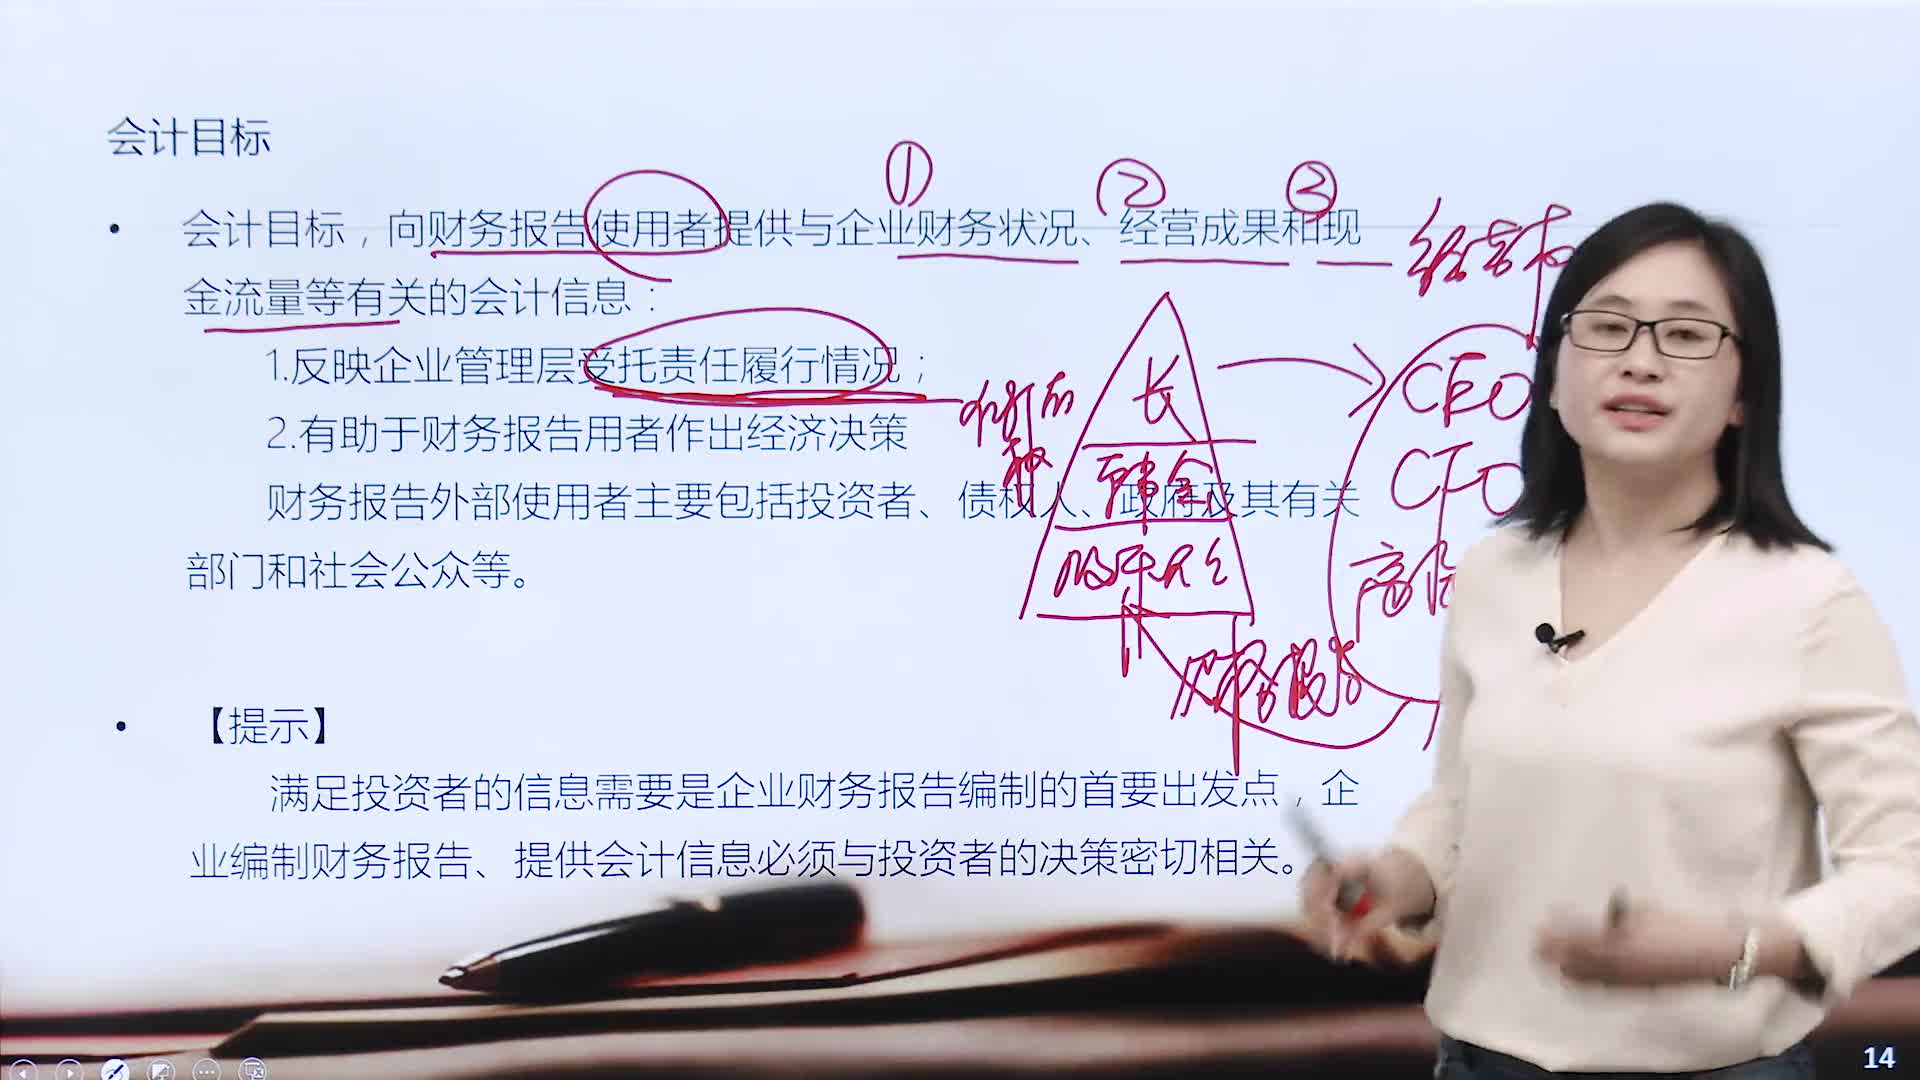 会计目标
• 会计目标，向财务报告使用者提供与企业财务状况、经营成果和现
金流量等有关的会计信息：
1.反映企业管理层受托责任履行情况；
2.有助于财务报告用者作出经济决策
财务报告外部使用者主要包括投资者、债权人、政府及其有关
部门和社会公众等。
• 【提示】
满足投资者的信息需要是企业财务报告编制的首要出发点，企
业编制财务报告、提供会计信息必须与投资者的决策密切相关。
① ② ③
经营权
所有权
长
董事会
股东大会
CEO
CFO
财务报告
14